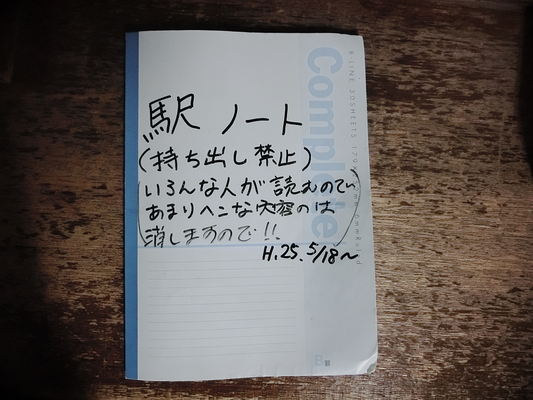 駅 ノート
(持ち出し禁止)
(いろんな人が読むのでい
あまりヘンな内容のは
消しますので!!)
H.25. 5/18〜
Comple
B罫